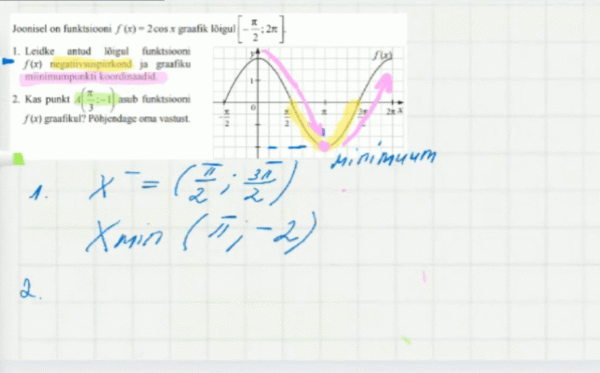 Joonisel on funktsiooni f(x) = 2cos x graafik lõigul [-π/2; 2π].
1. Leidke antud lõigul funktsiooni
f(x) negatiivsuspiirkond ja graafiku
miinimumpunkti koordinaadid.
2. Kas punkt A(π/3; -1) asub funktsiooni
f(x) graafikul? Põhjendage oma vastust.
y
f(x)
1
-π/2 0 π/2 π 3π/2 2π x
miinimum
1. X⁻ = (π/2; 3π/2)
Xmin (π; -2)
2.